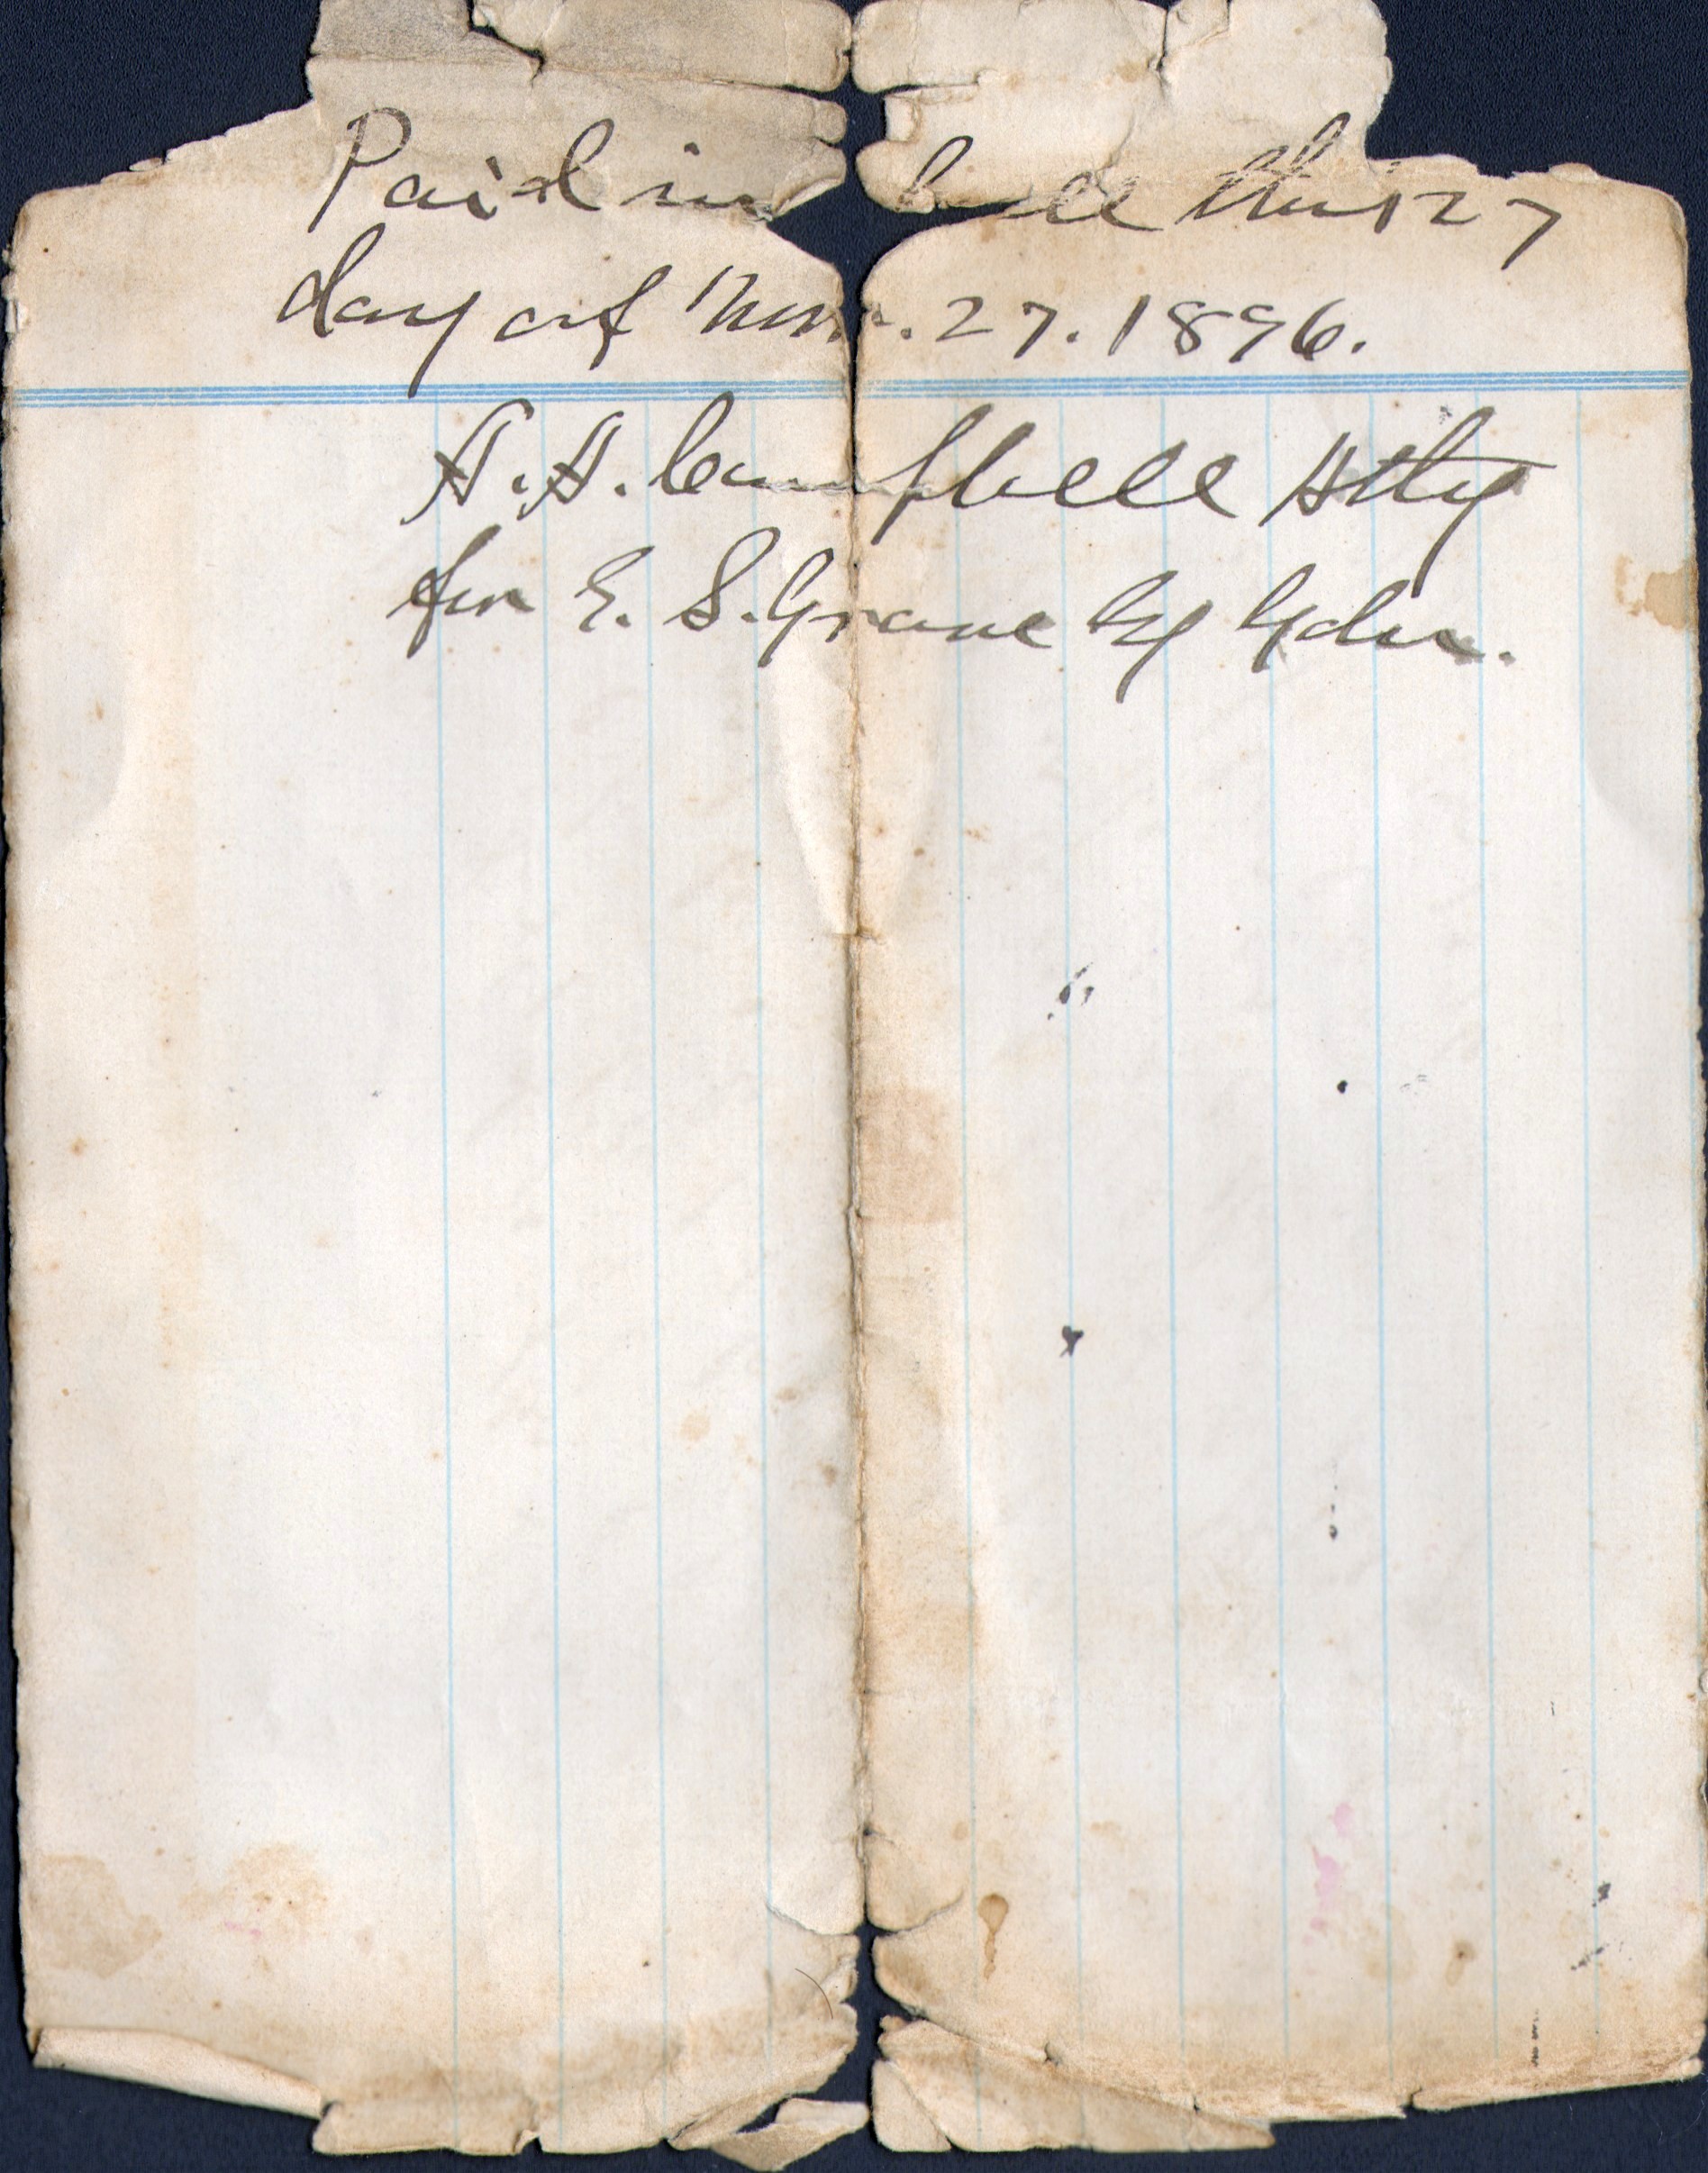 Paid in full this 27
day of Nov. 27. 1896.
A. A. Campbell Atty
for E. S. Crane by